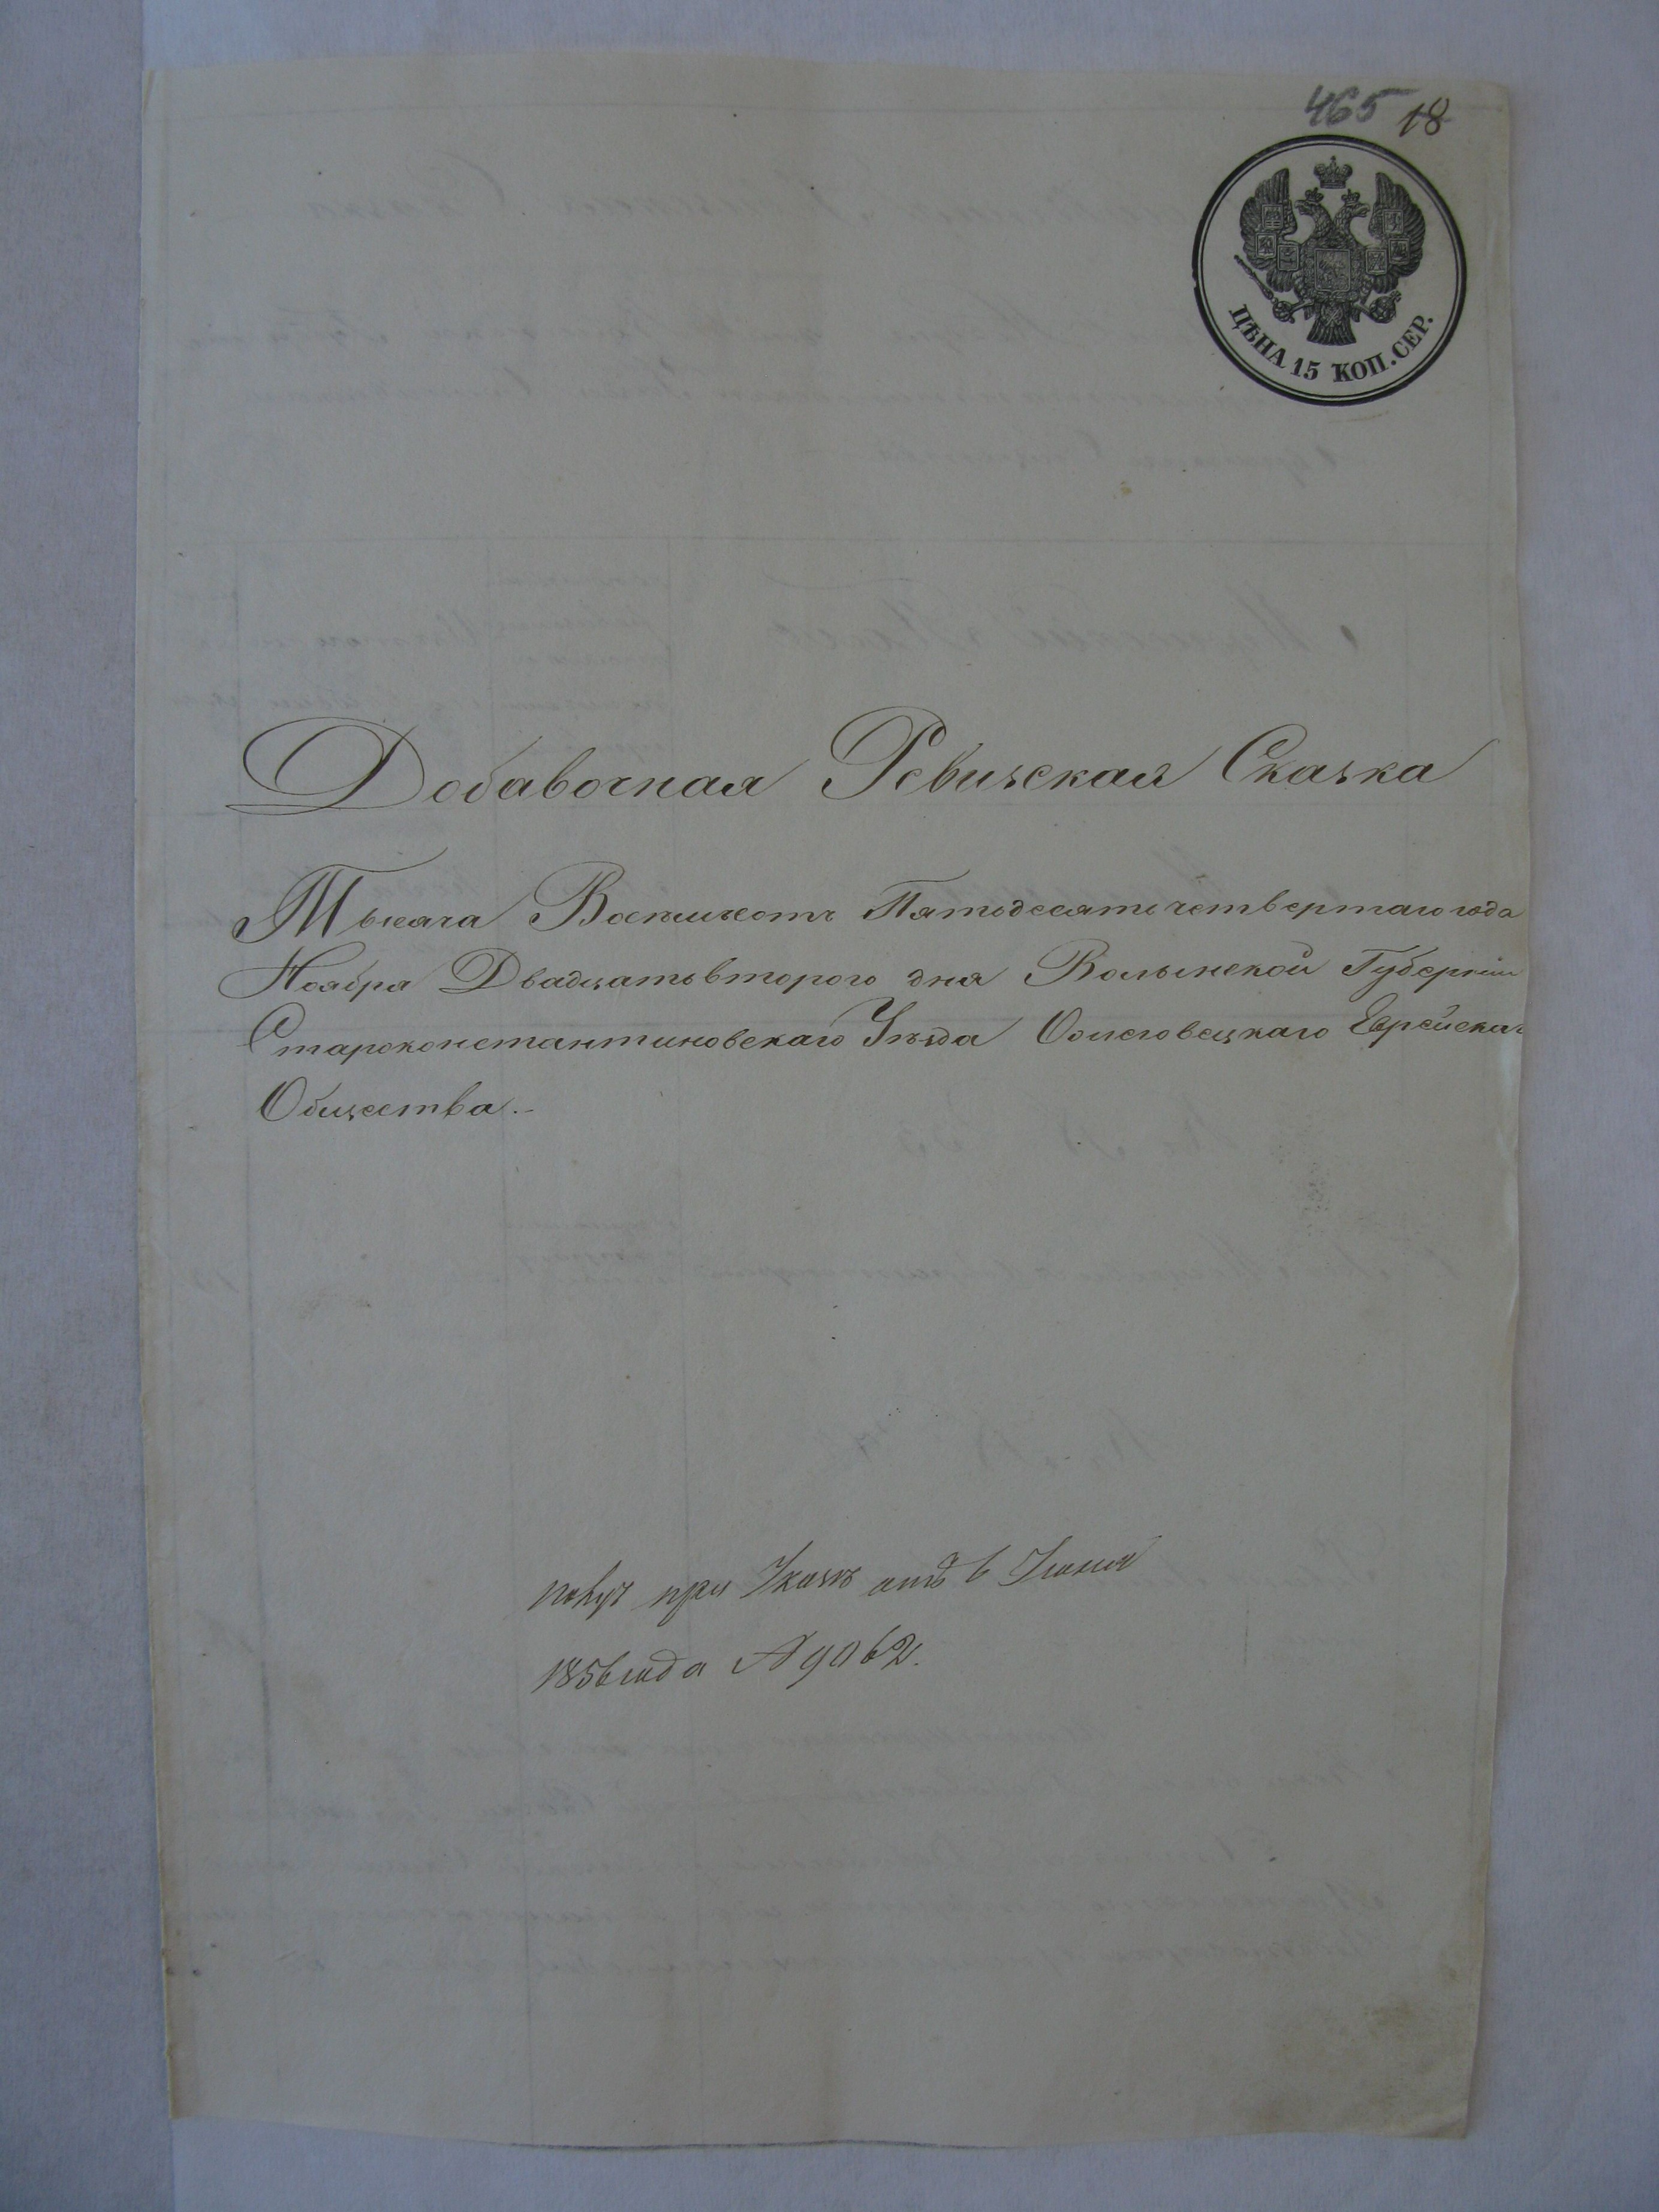 465 18
ЦѢНА 15 КОП. СЕР.
Добавочная Ревизская Сказка
Тысяча Восемьсотъ Пятьдесятъ четвертаго года
Ноября Двадцать второго дня Волынской Губерніи
Староконстантиновскаго Уѣзда Еврейскаго
Общества.-
при Указѣ отъ 6 Іюня
1856 года № 9062.